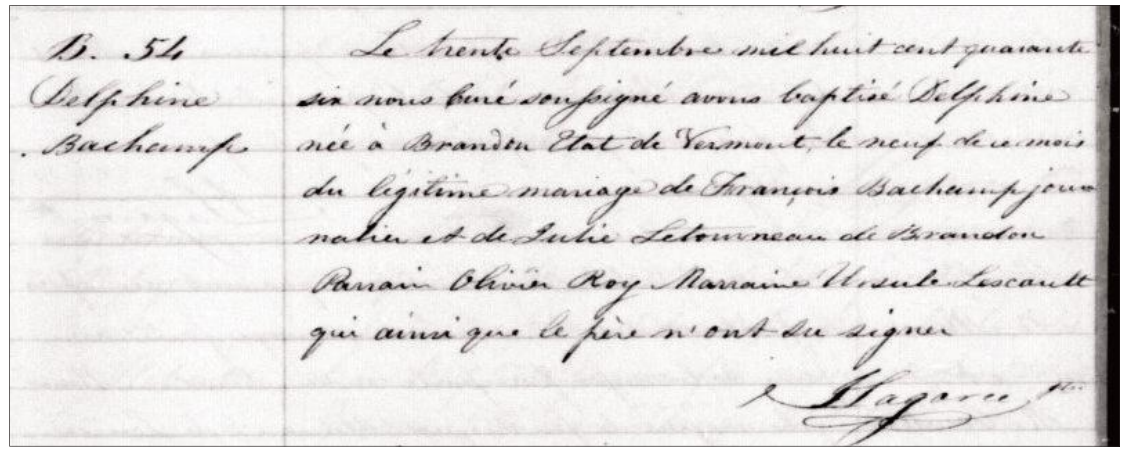 B. 54
Delphine
Bachamp
Le trente Septembre mil huit cent quarante
six nous curé soussigné avons baptisé Delphine
née à Brandon Etat de Vermont, le neuf de ce mois
du légitime mariage de François Bachamp jour
nalier et de Julie Letourneau de Brandon
Parrain Olivier Roy Marraine Ursule Lescault
qui ainsi que le père n'ont su signer